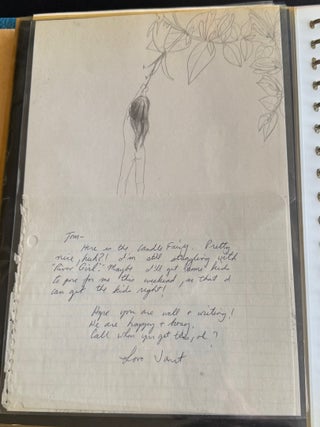 Tom-
Here is the Candle Fairy. Pretty
nice, huh?! I'm still struggling with
"River Girl." Maybe I'll get some kids
to pose for me this weekend, so that I
can get the kids right!
Hope you are well & writing!
We are happy &
Call when you get this, ok?
Love Janet